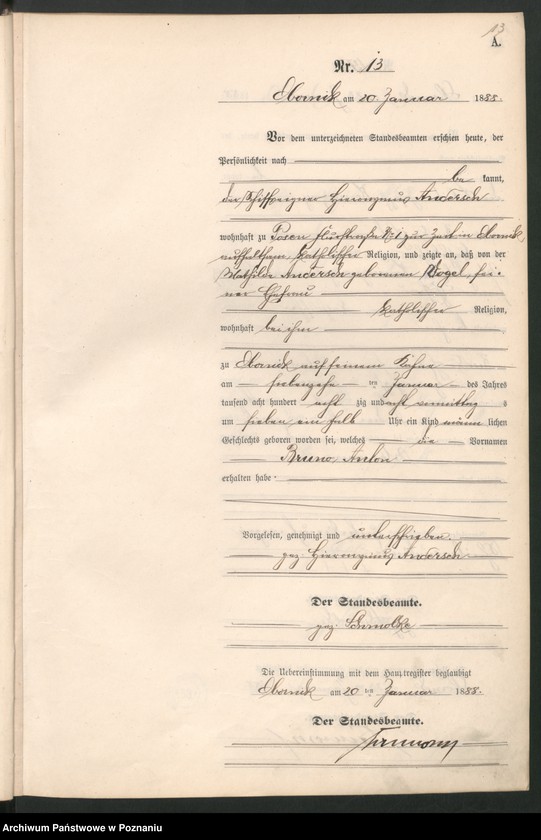 13
A.
Nr. 13
Obornik am 20 Januar 1888.
Vor dem unterzeichneten Standesbeamten erschien heute, der
Persönlichkeit nach
be kannt,
der Schiffseigner Hieronymus Andersch
wohnhaft zu Posen 1 zur Zeit in Obornik
aufhaltsam, katholischer Religion, und zeigte an, daß von der
Mathilde Andersch geborenen Vogel, sei-
ner Ehefrau
katholischer Religion,
wohnhaft bei ihm
zu Obornik auf seinem Kahne
am siebenzehn ten Januar des Jahres
tausend acht hundert acht zig und acht vormittag s
um sieben ein halb Uhr ein Kind männ lichen
Geschlechts geboren worden sei, welches die Vornamen
Bruno, Anton
erhalten habe
Vorgelesen, genehmigt und unterschrieben.
gez. Hieronymus Andersch
Der Standesbeamte.
gez. Schmolke
Die Uebereinstimmung mit dem Hauptregister beglaubigt
Obornik am 20 ten Januar 1888.
Der Standesbeamte.
Archiwum Państwowe w Poznaniu